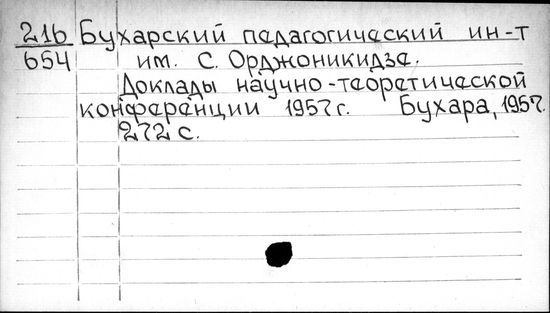 216 Бухарский педагогический ин-т
654 им. С. Орджоникидзе.
Доклады научно-теоретической
конференции 1957г. Бухара, 1957.
272 с.